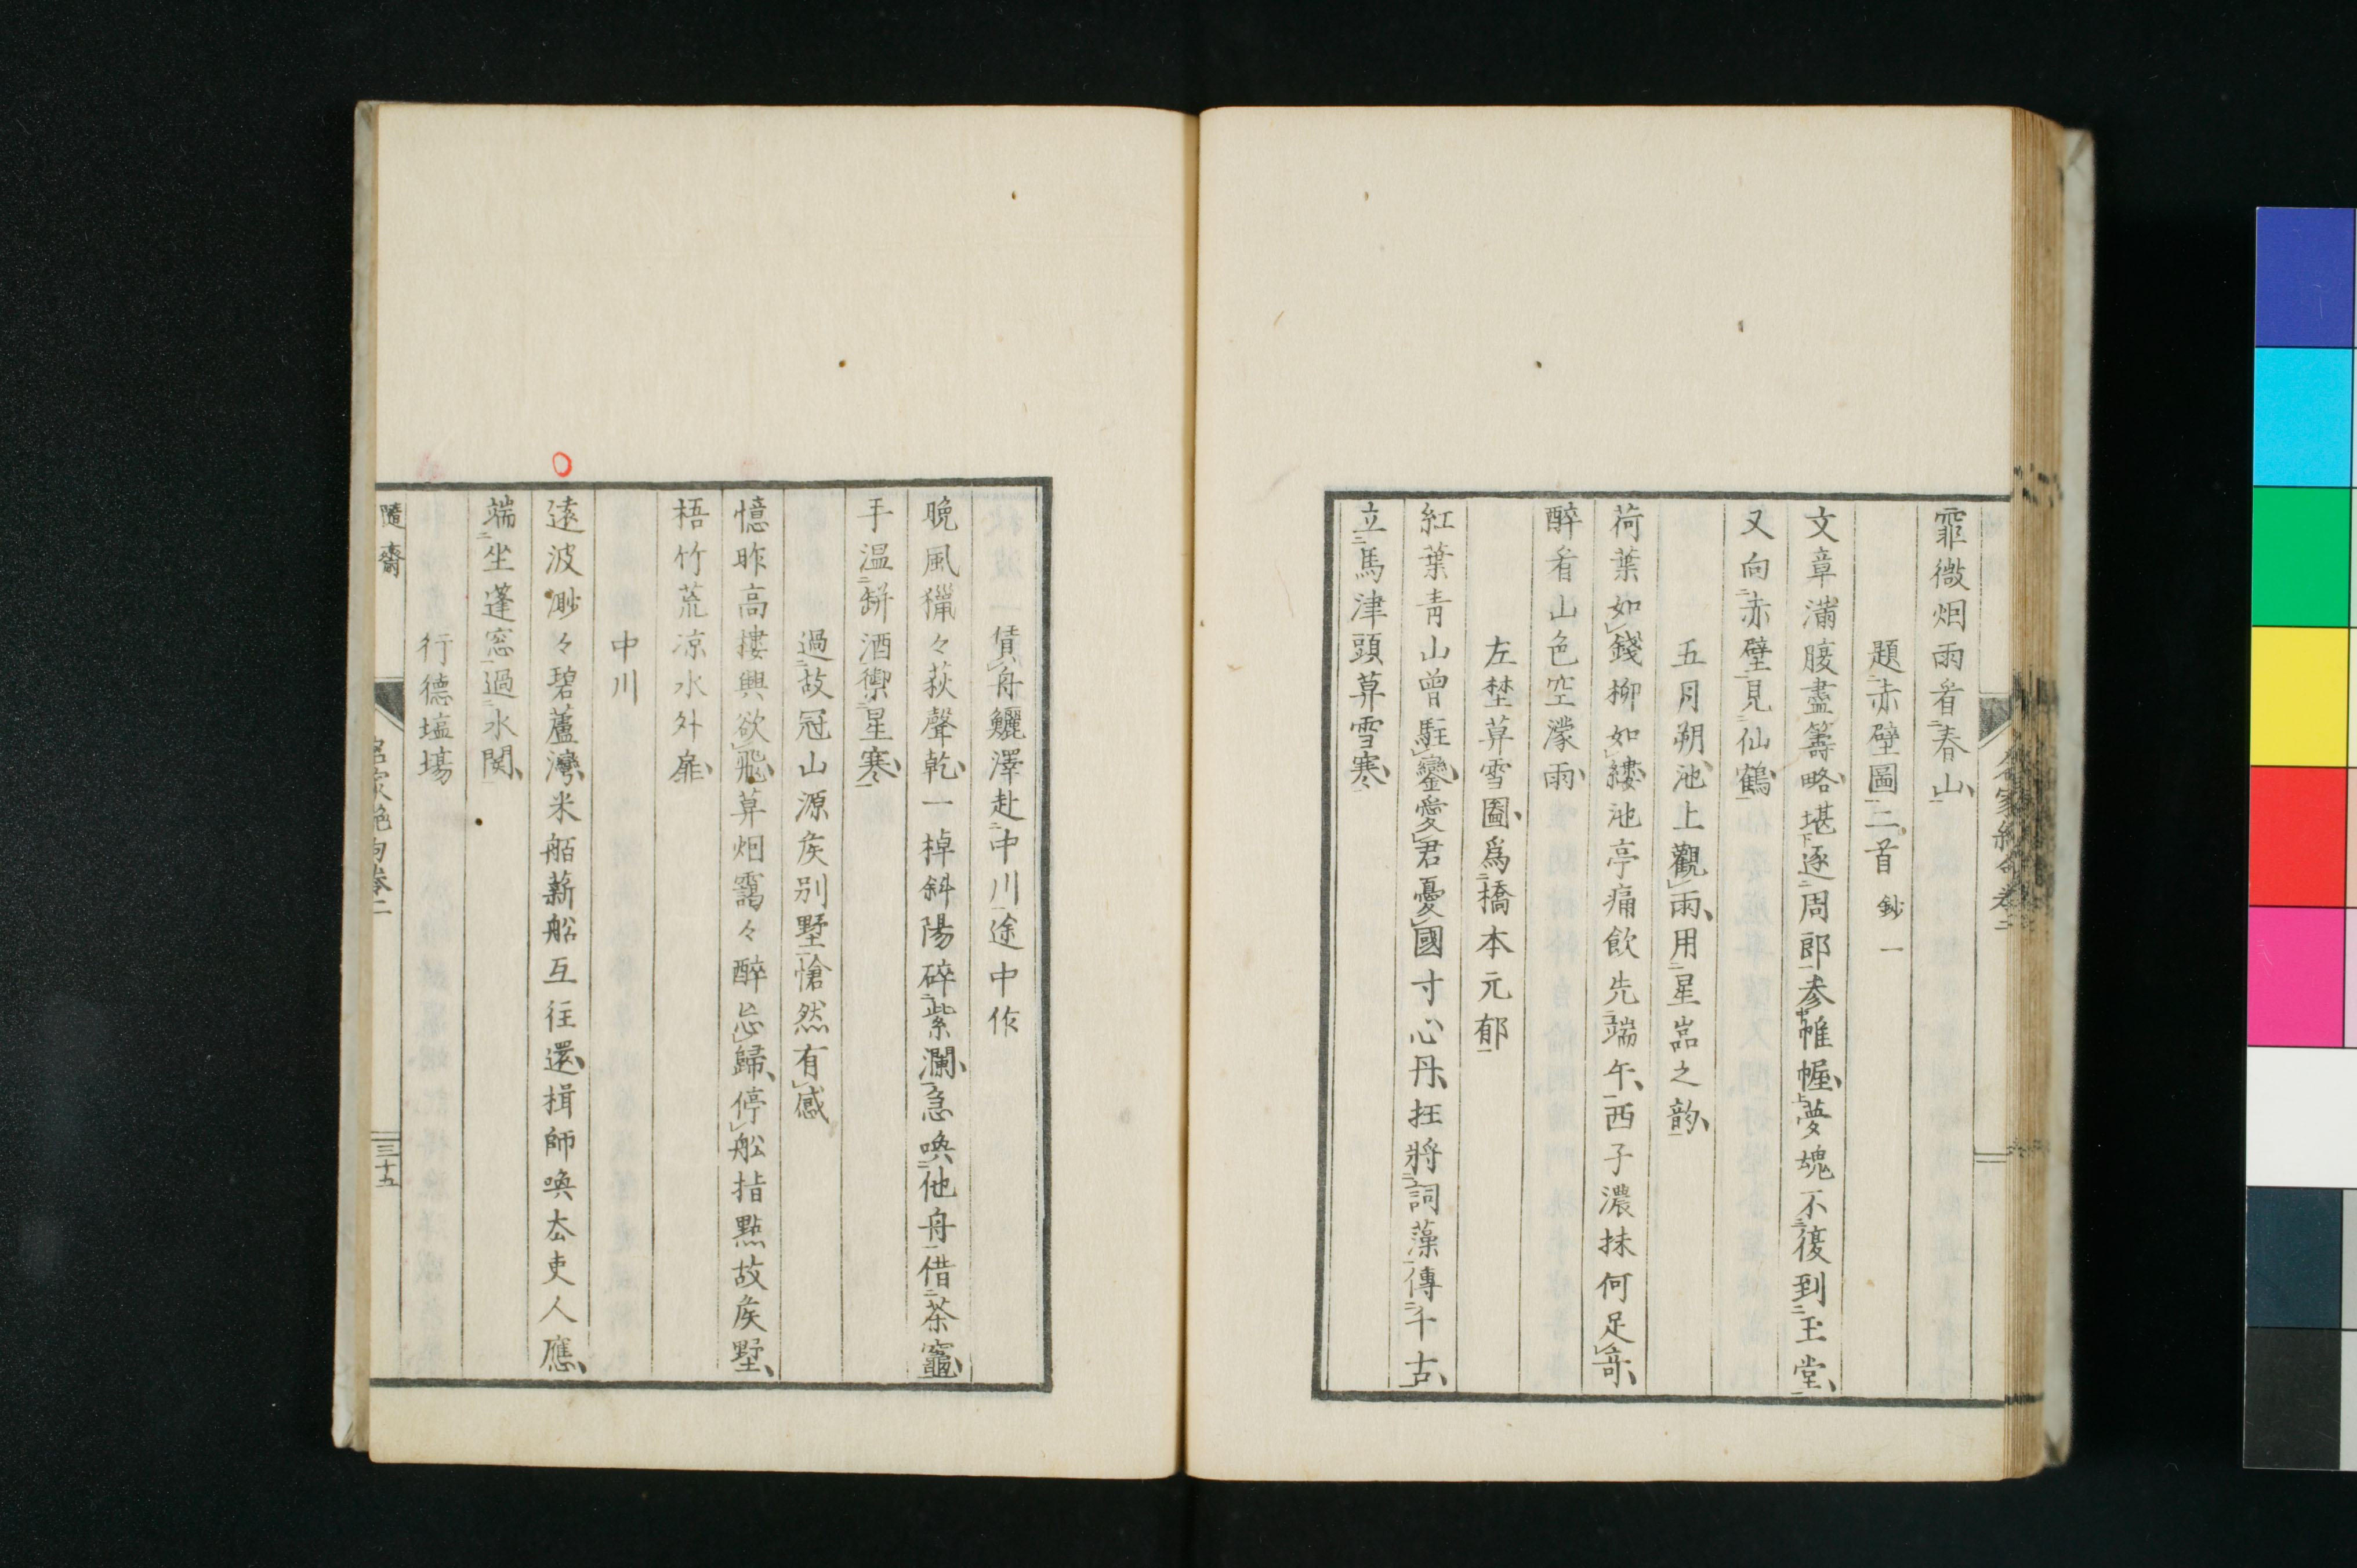 霏微烟雨看春山
題赤壁圖二首 鈔一
文章滿腹盡籌略堪逐周郎參帷幄夢魂不復到玉堂
又向赤壁見仙鶴
五月朔池上觀雨用星嵓之韵
荷葉如錢柳如縷池亭痛飲先端午西子濃抹何足奇
醉看山色空濛雨
左埜草雪圖爲橋本元郁
紅葉青山曾駐鑾愛君憂國寸心丹枉將詞藻傳千古
立馬津頭草雪寒
名家絶句卷二
僨舟鱺澤赴中川途中作
晚風獵々荻聲乾一棹斜陽碎紫瀾急喚他舟借茶竈
手温缾酒禦星寒
過故冠山源矦别墅愴然有感
憶昨高摟興欲飛草烟靄々醉忘歸停舩指點故矦墅
梧竹荒凉水外扉
中川
遠波渺々碧蘆灣米舶薪舩互往還揖師喚厺吏人應
端坐蓬窓過水関
行德塩塲
隨齋
名家絶句卷二
三十五